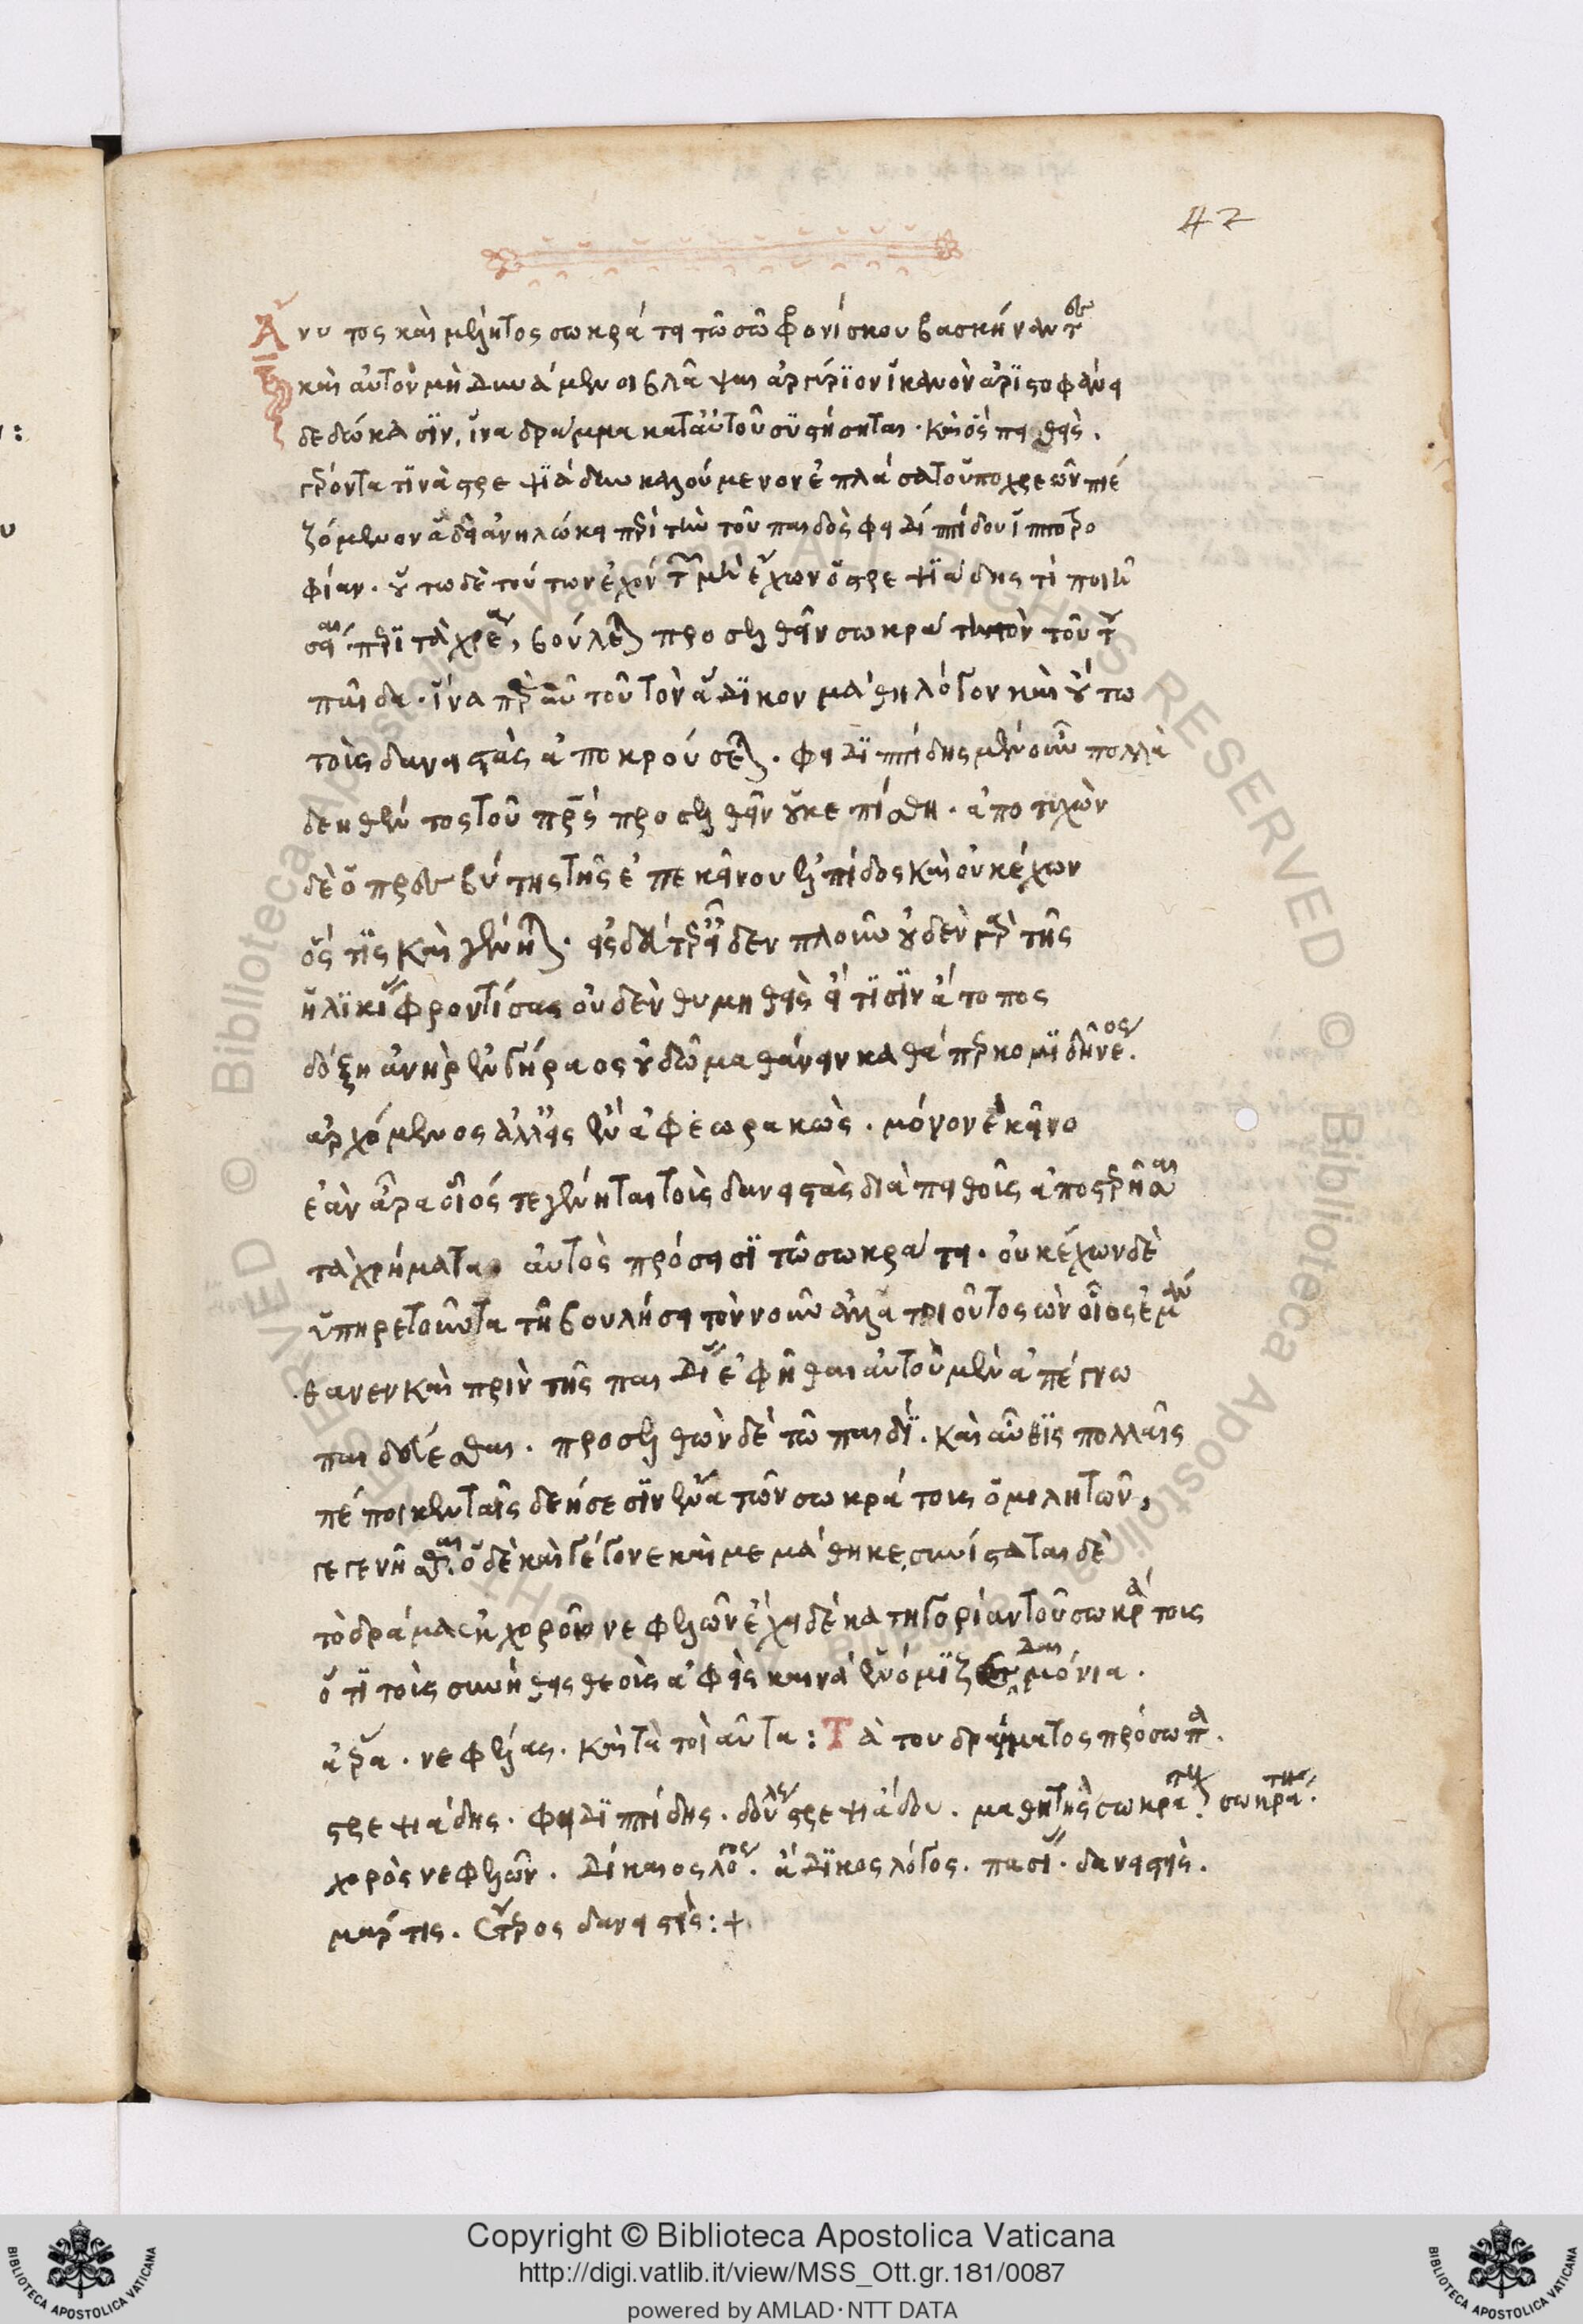 42
Ἄνυτος καὶ μέλητος σωκράτει τῶ σωφρονίσκου βασκήναντες
καὶ αὐτὸν μὴ δυνάμενοι βλάψαι ἀργύριον ἱκανὸν ἀριστοφάνει
δεδώκασιν, ἵνα δράμμα κατ' αὐτοῦ συστήσηται. καὶ ὃς πεισθεὶς.
γέροντά τινα στρεψιάδην καλούμενον ἐπλάσατο ὑπὸ χρεῶν πιε
ζόμενον ἃ δὴ ἀνηλώκει περὶ τὴν τοῦ παιδὸς φειδιππίδου ἱπποτρο
φίαν. οὕτω δὲ τούτων ἐχόντων μὴ ἔχων ὁ στρεψιάδης τί ποιή
σει περὶ τὰ χρέα, βούλεται προσελθεῖν σωκράτει τὸν τούτου
παῖδα. ἵνα παρ' αὐτοῦ τὸν ἄδικον μάθη λόγον καὶ οὕτω
τοὺς δανειστὰς ἀποκρούσεται. φειδιππίδης μὲν οὖν πολλὰ
δεηθέντος τοῦ πατρὸς προσελθεῖν οὐκ ἐπίσθη. ἀποτυχὼν
δὲ ὁ πρεσβύτης τῆς ἐπ' ἐκείνου ἐλπίδος καὶ οὐκ ἔχων
ὅστις καὶ γένηται. εἰς δεύτερον εἶδεν πλοῦν οὐδὲν γὰρ τῆς
ἡλικίας φροντίσας οὐδ' ἐνθυμηθεὶς εἴ τισιν ἄτοπος
δόξη ἀνὴρ ἐν γήραος οὐδῶ μανθάνειν καθάπερ κομιδῆ νέος.
ἀρχόμενος ἀλλ' εἰς ἓν ἀφεωρακὼς. μόνον ἐκεῖνο
ἐὰν ἄρα οἷός τε γένηται τοὺς δανειστὰς διὰ πειθοῦς ἀποστερῆσαι
τὰ χρήματα. αὐτὸς πρόσεισι τῶ σωκράτει. οὐκ ἔχων δὲ
ὑπηρετοῦντα τῆ βουλήσει τὸν νοῦν ἀλλὰ τοιοῦτος ὢν οἷος ἐμάν
θανεν καὶ πρὶν τῆς παιδείας ἐφῆφθαι αὐτοῦ μὲν ἀπέγνω
παιδεύεσθαι. προσελθὼν δὲ τῶ παιδὶ. καὶ αὖθις πολλαῖς
πέποικεν ταῖς δεήσεσιν ἕνα τῶν σωκράτους ὁμιλητῶν,
γεγενῆσθαι. ὃ δὲ καὶ γέγονε καὶ μεμάθηκε, συνίσταται δὲ
τὸ δράμα ἐκ χοροῦ νεφελῶν ἔχει δὲ κατηγορίαν τοῦ σωκράτους
ὅτι τοὺς συνήθεις θεοὺς ἀφεὶς καινὰ ἐνόμιζε δαιμόνια.
ἀέρα. νεφέλας. καὶ τὰ τοιαῦτα: Τὰ του δράματος πρόσωπα.
στρεψιάδης. Φειδιππίδης. δοῦλος στρεψιάδου. μαθητὴς σωκράτους. σωκράτης.
χορὸς νεφελῶν. Δίκαιος λόγος. ἄδικος λόγος. πασίας. δανειστής.
μάρτις. Ἕτερος δανειστὴς:+
Copyright © Biblioteca Apostolica Vaticana
http://digi.vatlib.it/view/MSS_Ott.gr.181/0087
powered by AMLAD·NTT DATA